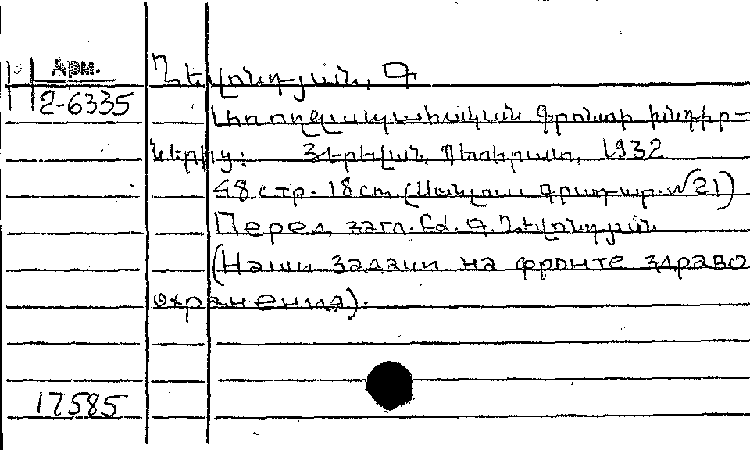 Арм.
2-6335
Ղևոնդյան, Գ
Առողջապահական ֆրոնտի խնդիր-
ներից: Յերևան, Պետհրատ, 1932
48 стр. 18 см (№21)
Перед загл. Գ. Ղևոնդյան
(Наши задачи на фронте здраво
охранения).
17585